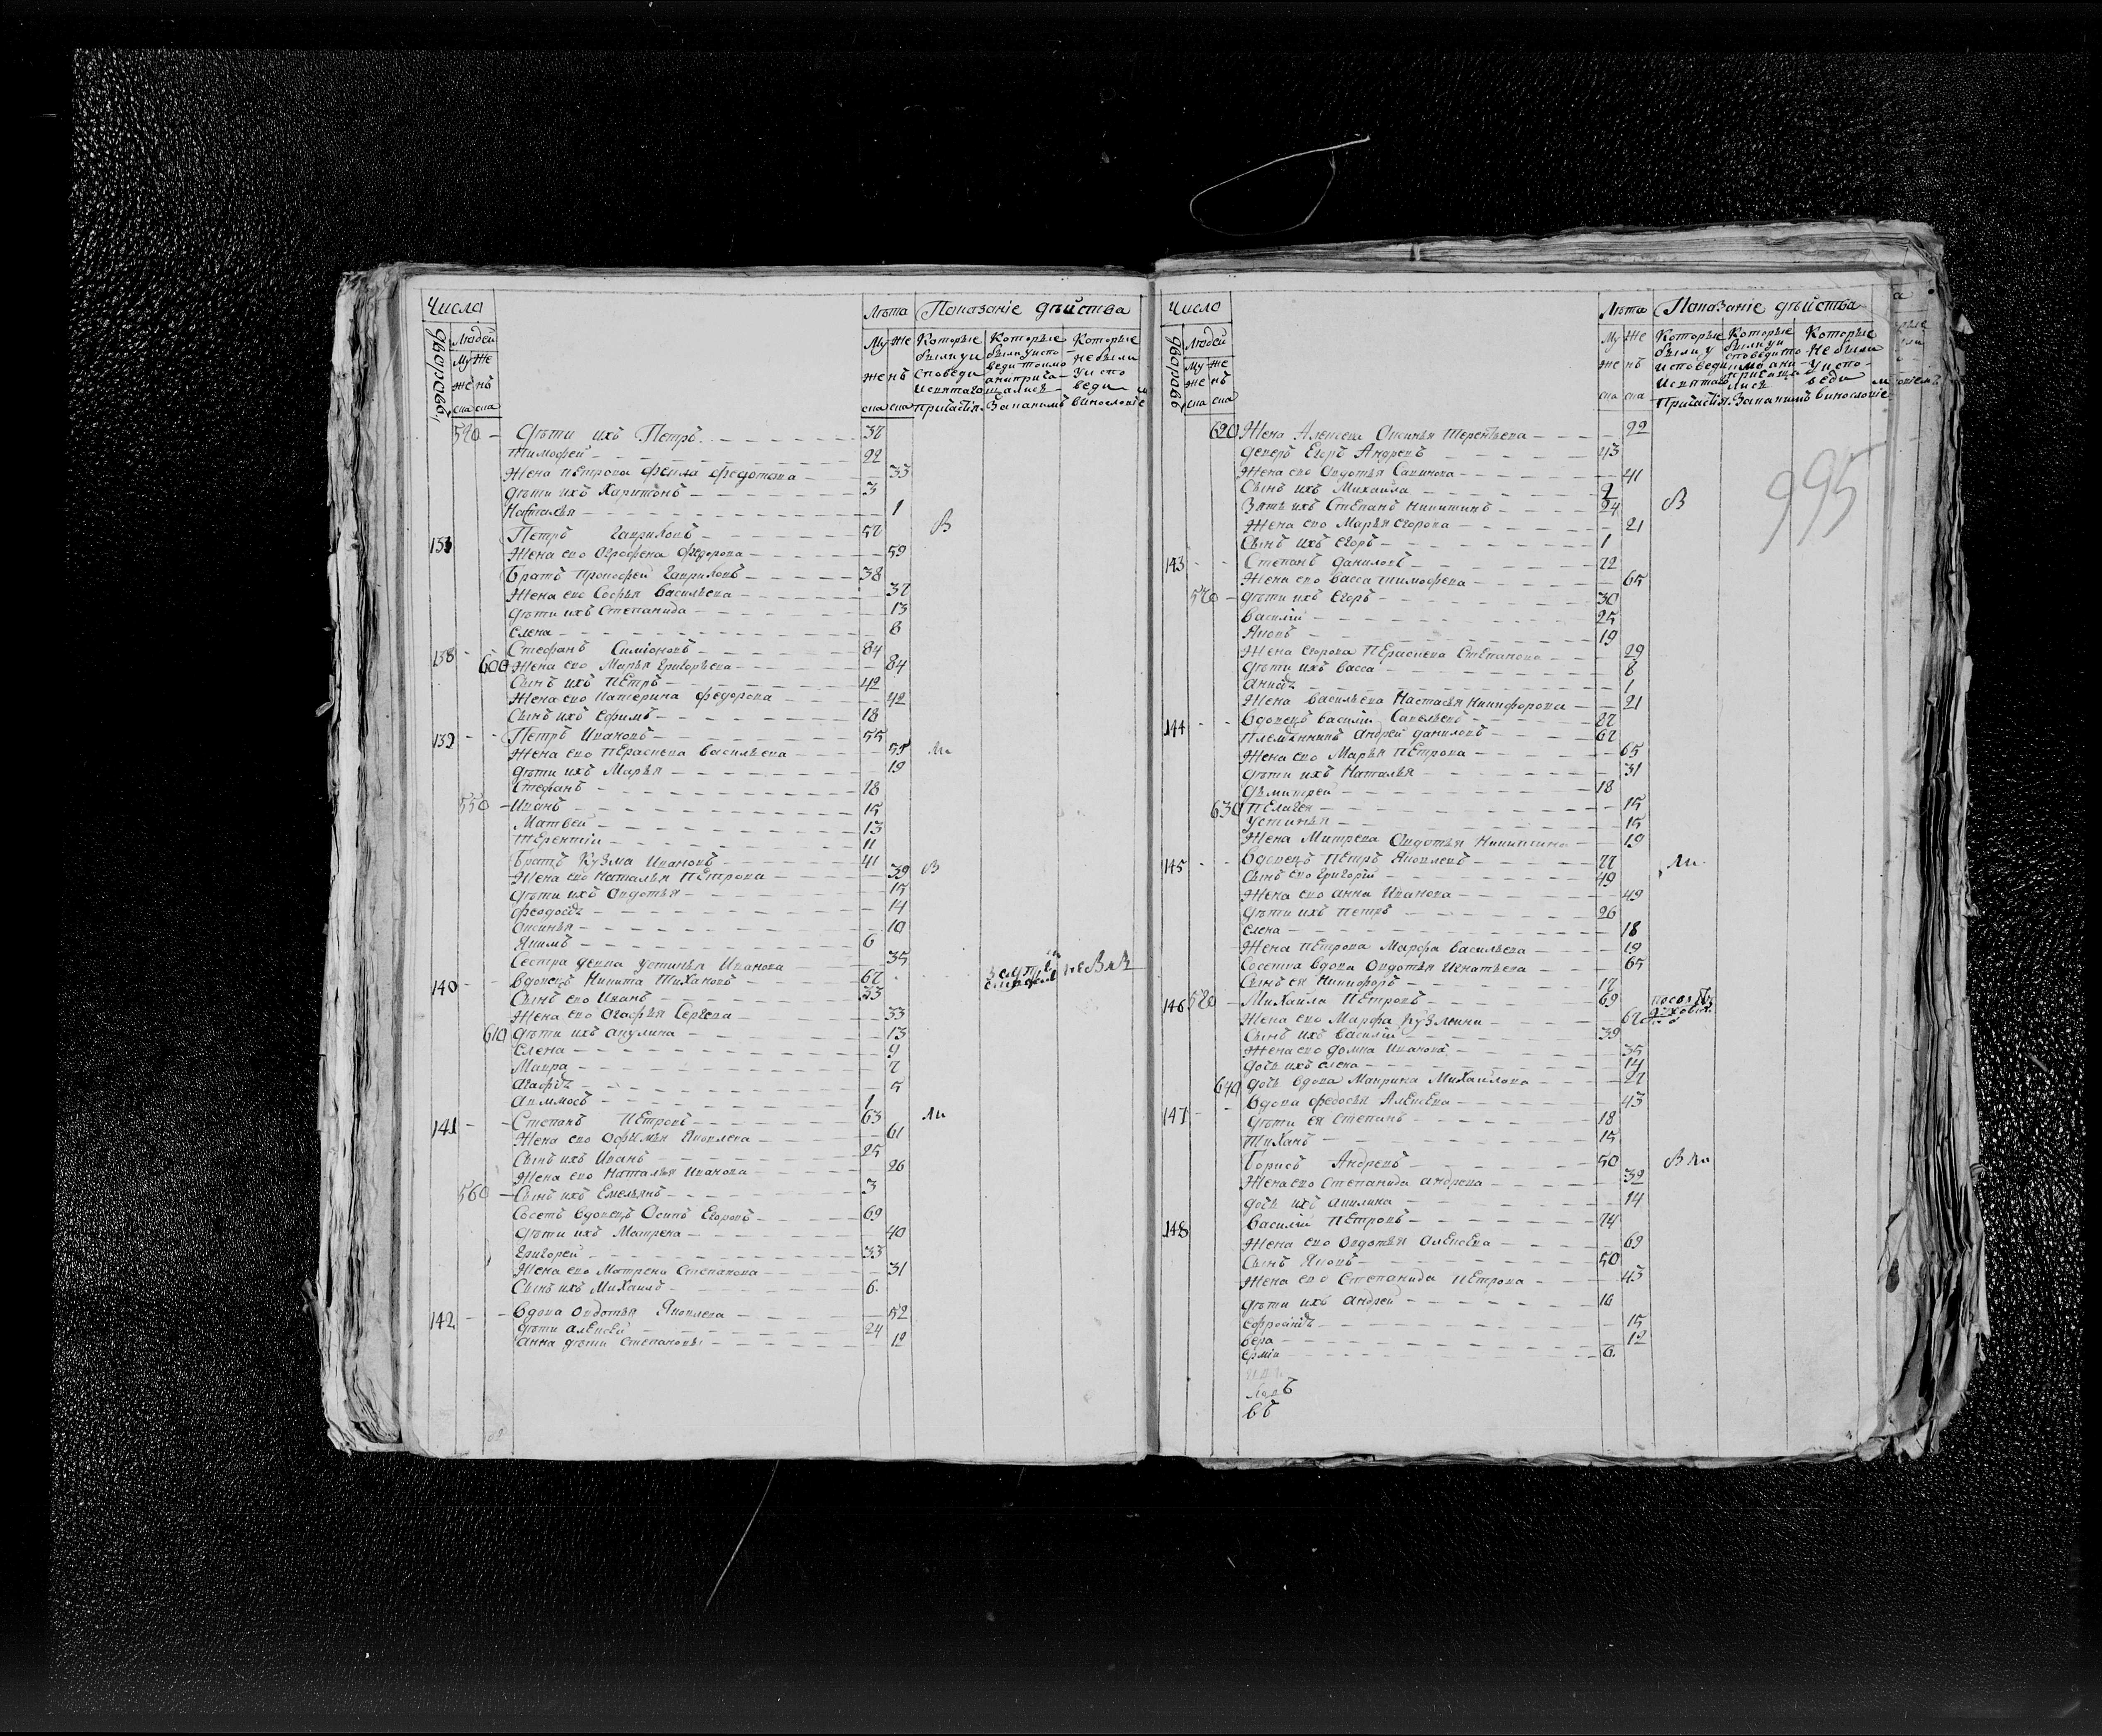 Числа
Лѣта Показаніе дѣиства
дворовъ, Людей
Му Же
Которые Которые Которые
были у и были у испо не были
споведи веди токмо у испо
женъ
и святаго веди
ска ска
ска ска причастія. За какимъ винословіе
540 Дѣти ихъ Петръ 37
Тимофей 22
Жена Петрова Фекла Федотова 33
Дѣти ихъ Харитонъ 3
Наталья 1
Петръ Гавриловъ 57 В
Жена ево Огрофена Федорова 59
Братъ Прокофей Гавриловъ 38
Жена ево Софья Васильева 37
Дѣти ихъ Степанида 13
Елена 8
138 Стефанъ Симіоновъ 84
600 Жена ево Марья Григорьева 84
Сынъ ихъ Петръ 42
Жена ево Катерина Федорова 42
Сынъ ихъ Ефимъ 18
139 Петръ Ивановъ 55
Жена ево Праскева Васильева 55
Дѣти ихъ Марья 19
Стефанъ 18
550 Иванъ 15
Матвей 13
Терентіи 11
Братъ Кузма Ивановъ 41
Жена ево Наталья Петрова 39 В
Дѣти ихъ Овдотья 15
Феодосія 14
Оксинья 10
Якимъ 6
Сестра девка Устинья Иванова 35
140 Вдовецъ Никита Тихановъ 67
Сынъ ево Иванъ 33
Жена ево Огафья Сергева 33
610 Дѣти ихъ Акулина 13
Елена 9
Мавра 7
Агафія 5
1
141 Степанъ Петровъ 63
Жена ево Офимья Яковлева 61
Сынъ ихъ Иванъ 25
Жена ево Наталья Иванова 26
560 Сынъ ихъ Емельянъ 3
Соседъ вдовецъ Осипъ Егоровъ 69
Дѣти ихъ Матрена 40
Григорей 33
Жена ево Матрена Степанова 31
Сынъ ихъ Михаилъ 6.
142 Вдова Овдотья Яковлева 52
Дѣти Алексей 24
Анна Дѣти Степановы 12
Число
Лѣта Показаніе дѣиства
дворовъ Людей
Му Же
Которые Которые Которые
не были
ска ска
ска ска Причастія. За какимъ винословіе
620 Жена Алексева Оксинья Терентьева 22
Деверь Егоръ Андревъ 43
Жена ево Овдотья Савинова 41
Сынъ ихъ Михаила
Зять ихъ Степанъ Никитинъ 24 В
Жена ево Марья Егорова 21
995
Сынъ ихъ Егоръ 1
143 Степанъ Даниловъ 72
Жена ево Васса Тимофева 65
570 Дѣти ихъ Егоръ 30
Василіи 25
Яковъ 19
Жена Егорова Праскева Степанова 29
Дѣти ихъ Васса 8
1
Жена Васильева Настасья Никифорова 21
144 Вдовецъ Василіи Савельевъ 77
Племянникъ Андрей Даниловъ 67
Жена ево Марья Петрова 65
Дѣти ихъ Наталья 31
Дьмитрей 18
630 Пелагея 15
Устинья 15
Жена Митрева Овдотья Никитина 19
145 Вдовецъ Петръ Яковлевъ 77
Сынъ ево Григоріи 49
Жена ево Анна Иванова 49
Дѣти ихъ Петръ 26
Елена 18
Жена Петрова Марфа Васильева 19
Соседка вдова Овдотья Игнатьева 65
Сынъ ея Никифоръ 17
146 580 Михаила Петровъ 69
Жена ево Марфа Кузмина
Сынъ ихъ Василіи 39
Жена ево Домна Иванова 35
Дочь ихъ Елена 14
640 Дочь вдова Маврина Михайлова 27
147 Вдова Федосья Алексева 43
Дѣти ея Степанъ 18
Тиханъ 15
Борисъ Андревъ 50
Жена ево Степанида Андрева 39
Дочь ихъ Акилина 14
148 Василіи Петровъ 74
Жена ево Овдотья Алексева 69
Сынъ Яковъ 50
Жена ево Степанида Петрова 43
Дѣти ихъ Андрей 16
Ефросинія 15
Вера 12
Ермія 6.